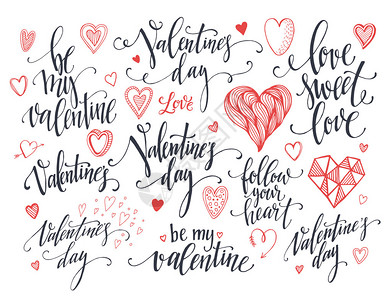 be
my
valentine
Valentine's
day
Love
love
sweet
love
Valentines
Valentine's
day
follow
your
heart
Valentine's
day
be my
valentine
Valentine's
day